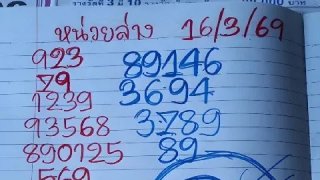 หน่วยล่าง 16/3/69
923 89146
79 3694
1239 3789
93568 89
890125
569